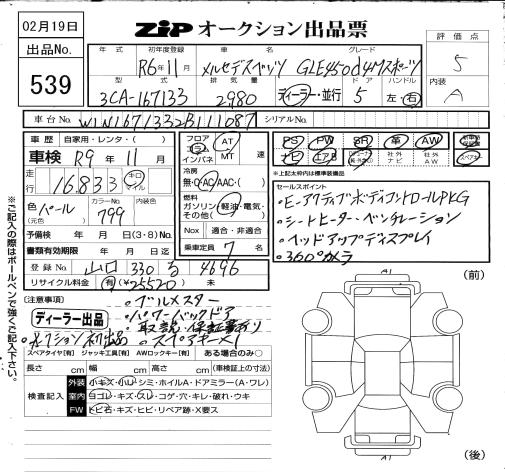 02月19日
ZiP オークション出品票
出品No.
539
評価点
5
内装
A
年式 初年度登録 車名 グレード
R6年11月 メルセデスベンツ GLE450d 4Mスポーツ
型式 排気量 ドア ハンドル
3CA-167133 2980 ディーラー・並行 5 左・右
車台No. W1N1671332B111087 シリアルNo.
車歴 自家用・レンタ・( )
車検 R9年11月
走行 16,833 キロ マイル
フロア コラム インパネ AT MT 速
冷房 無・A/C・AAC・( )
燃料 ガソリン・軽油・電気・その他( )
Nox 適合・非適合
乗車定員 7名
PS PW SR 革 AW
ナビ エアB 社外ナビ 社外AW スペアキー
※上記太わ内は標準装備品
色(元色) パール カラーNo. 799 内装色
予備検 年 月 日(3・8)No.
書類有効期限 年 月 日迄
登録No. 山口 330 る 4696
リサイクル料金 (有(¥25520) 未
セールスポイント
・E-アクティブボディコントロールPKG
・シートヒーター・ベンチレーション
・ヘッドアップディスプレイ
・360°カメラ
(注意事項)
ディーラー出品
・ブルメスター
・パワーバックドア
・オークション初出品 ・取説・保証書有り
・スペアキー×1
スペアタイヤ[有] ジャッキ工具[有] AWロックキー[有] ある場合のみ○
長さ cm 幅 cm 高さ cm (車検証上の寸法)
検査記入
外装 小キズ・小凹・シミ・ホイルA・ドアミラー(A・ワレ)
室内 ヨゴレ・キズ・スレ・コゲ・穴・キレ・破れ・ウキ
FW トビ石・キズ・ヒビ・リペア跡・X要ス
※ご記入の際はボールペンで強くご記入下さい。
(前)
(後)